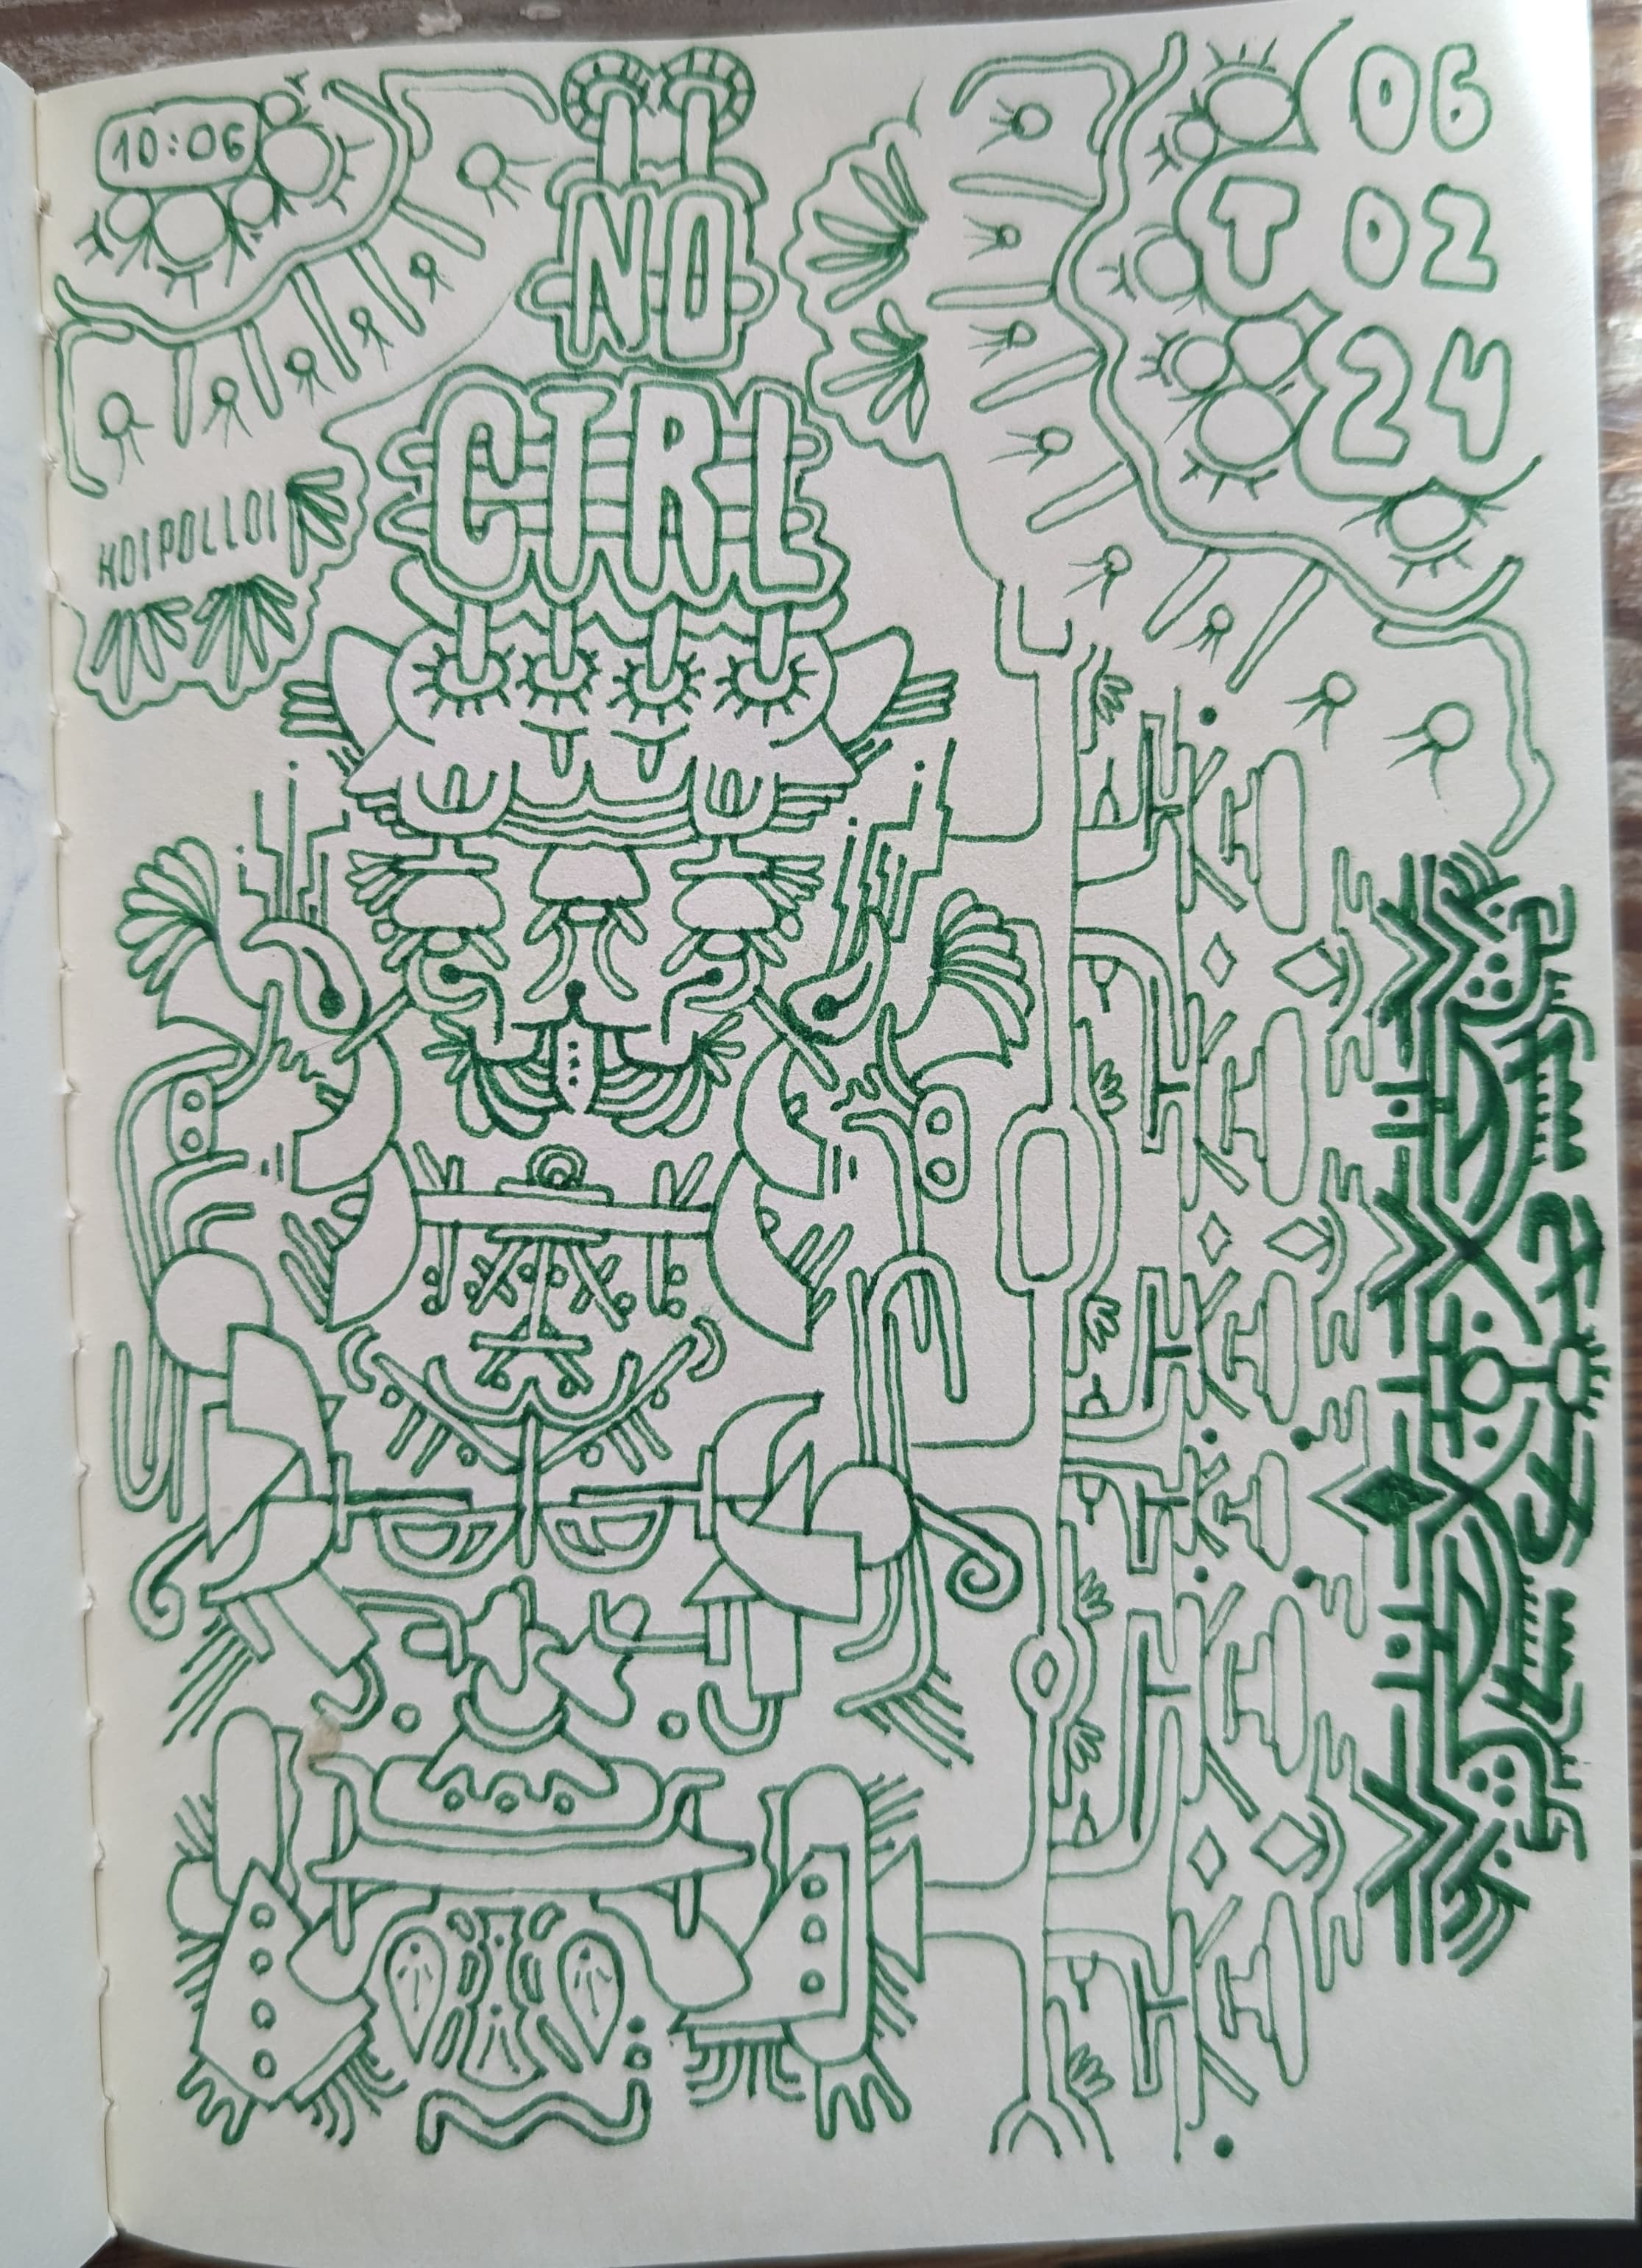 10:06
06
T 02
24
NO
CTRL
HOIPOLLOI